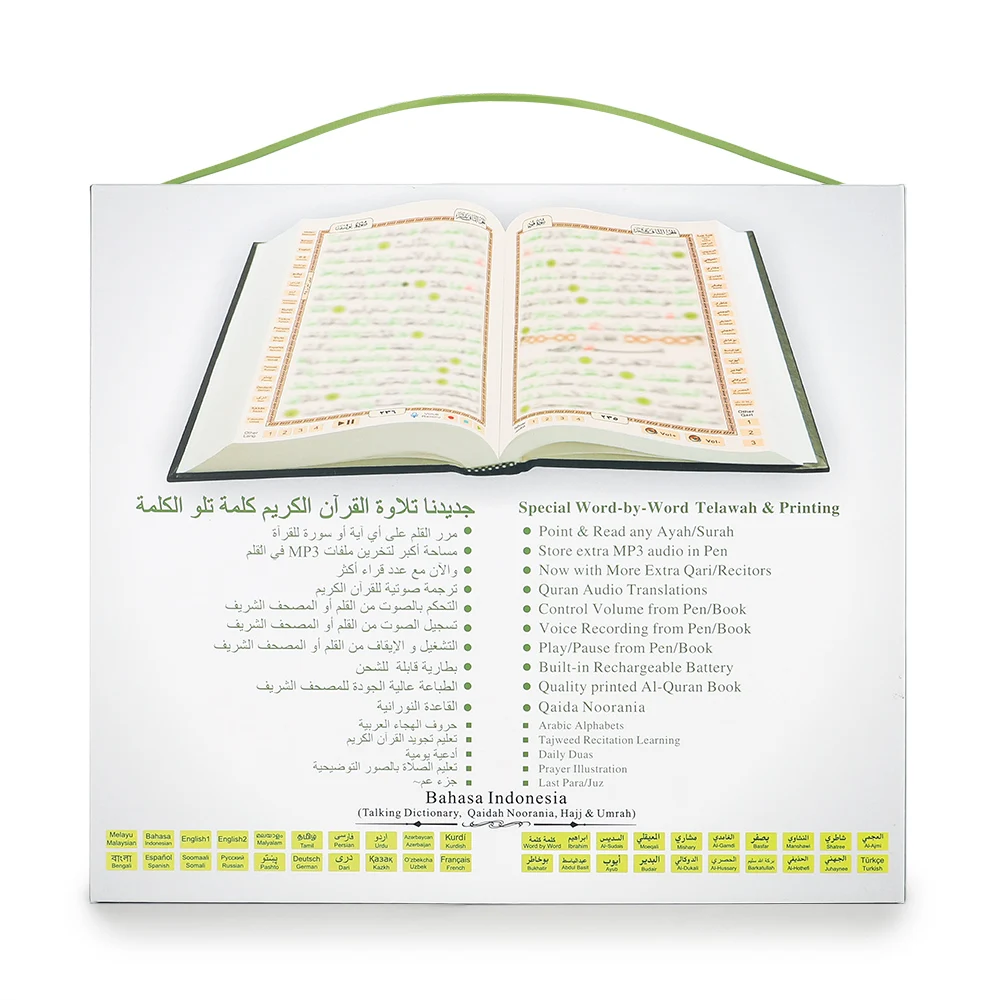 ٢٣٦
٢٣٥
Other
Qari
1
2
3
1 2 3 4
Vol+
Vol-
جديدنا تلاوة القرآن الكريم كلمة تلو الكلمة
مرر القلم على أي آية أو سورة للقرأة
مساحة أكبر لتخرين ملفات MP3 في القلم
والآن مع عدد قراء أكثر
ترجمة صوتية للقرآن الكريم
التحكم بالصوت من القلم أو المصحف الشريف
تسجيل الصوت من القلم أو المصحف الشريف
التشغيل و الإيقاف من القلم أو المصحف الشريف
بطارية قابلة للشحن
الطباعة عالية الجودة للمصحف الشريف
القاعدة النورانية
حروف الهجاء العربية
تعليم تجويد القرآن الكريم
أدعية يومية
تعليم الصلاة بالصور التوضيحية
جزء عم~
Special Word-by-Word Telawah & Printing
Point & Read any Ayah/Surah
Store extra MP3 audio in Pen
Now with More Extra Qari/Recitors
Quran Audio Translations
Control Volume from Pen/Book
Voice Recording from Pen/Book
Play/Pause from Pen/Book
Built-in Rechargeable Battery
Quality printed Al-Quran Book
Qaida Noorania
Arabic Alphabets
Tajweed Recitation Learning
Daily Duas
Prayer Illustration
Last Para/Juz
Bahasa Indonesia
(Talking Dictionary, Qaidah Noorania, Hajj & Umrah)
Melayu Bahasa English1 English2 മലയാളം தமிழ் فارسی اردو Azərbaycan Kurdi
Malaysian Indonesian Malyalam Tamil Persian Urdu Azerbaijan Kurdish
বাংলা Español Soomaali Русский پښتو Deutsch دری Қазақ O'zbekcha Français
Bengali Spanish Somali Russian Pashto German Dari Kazkh Uzbek French
كلمة كلمة ابراهيم السديس المعيقلي مشاري الغامدي بصفر المنشاوي شاطري العجمي
Word by Word Ibrahim Al-Sudais Mowqali Mishary Al-Gamdi Basfar Manshawi Shatree Al-Ajmi
بوخاطر عبدالباسط أيوب البدير الدوكالي الحصري بركة الله سليم الحذيفي الجهني Türkçe
Bukhatir Abdul Basit Ayub Budair Al-Dukali Al-Hussary Barkatullah Al-Hothefi Juhaynee Turkish